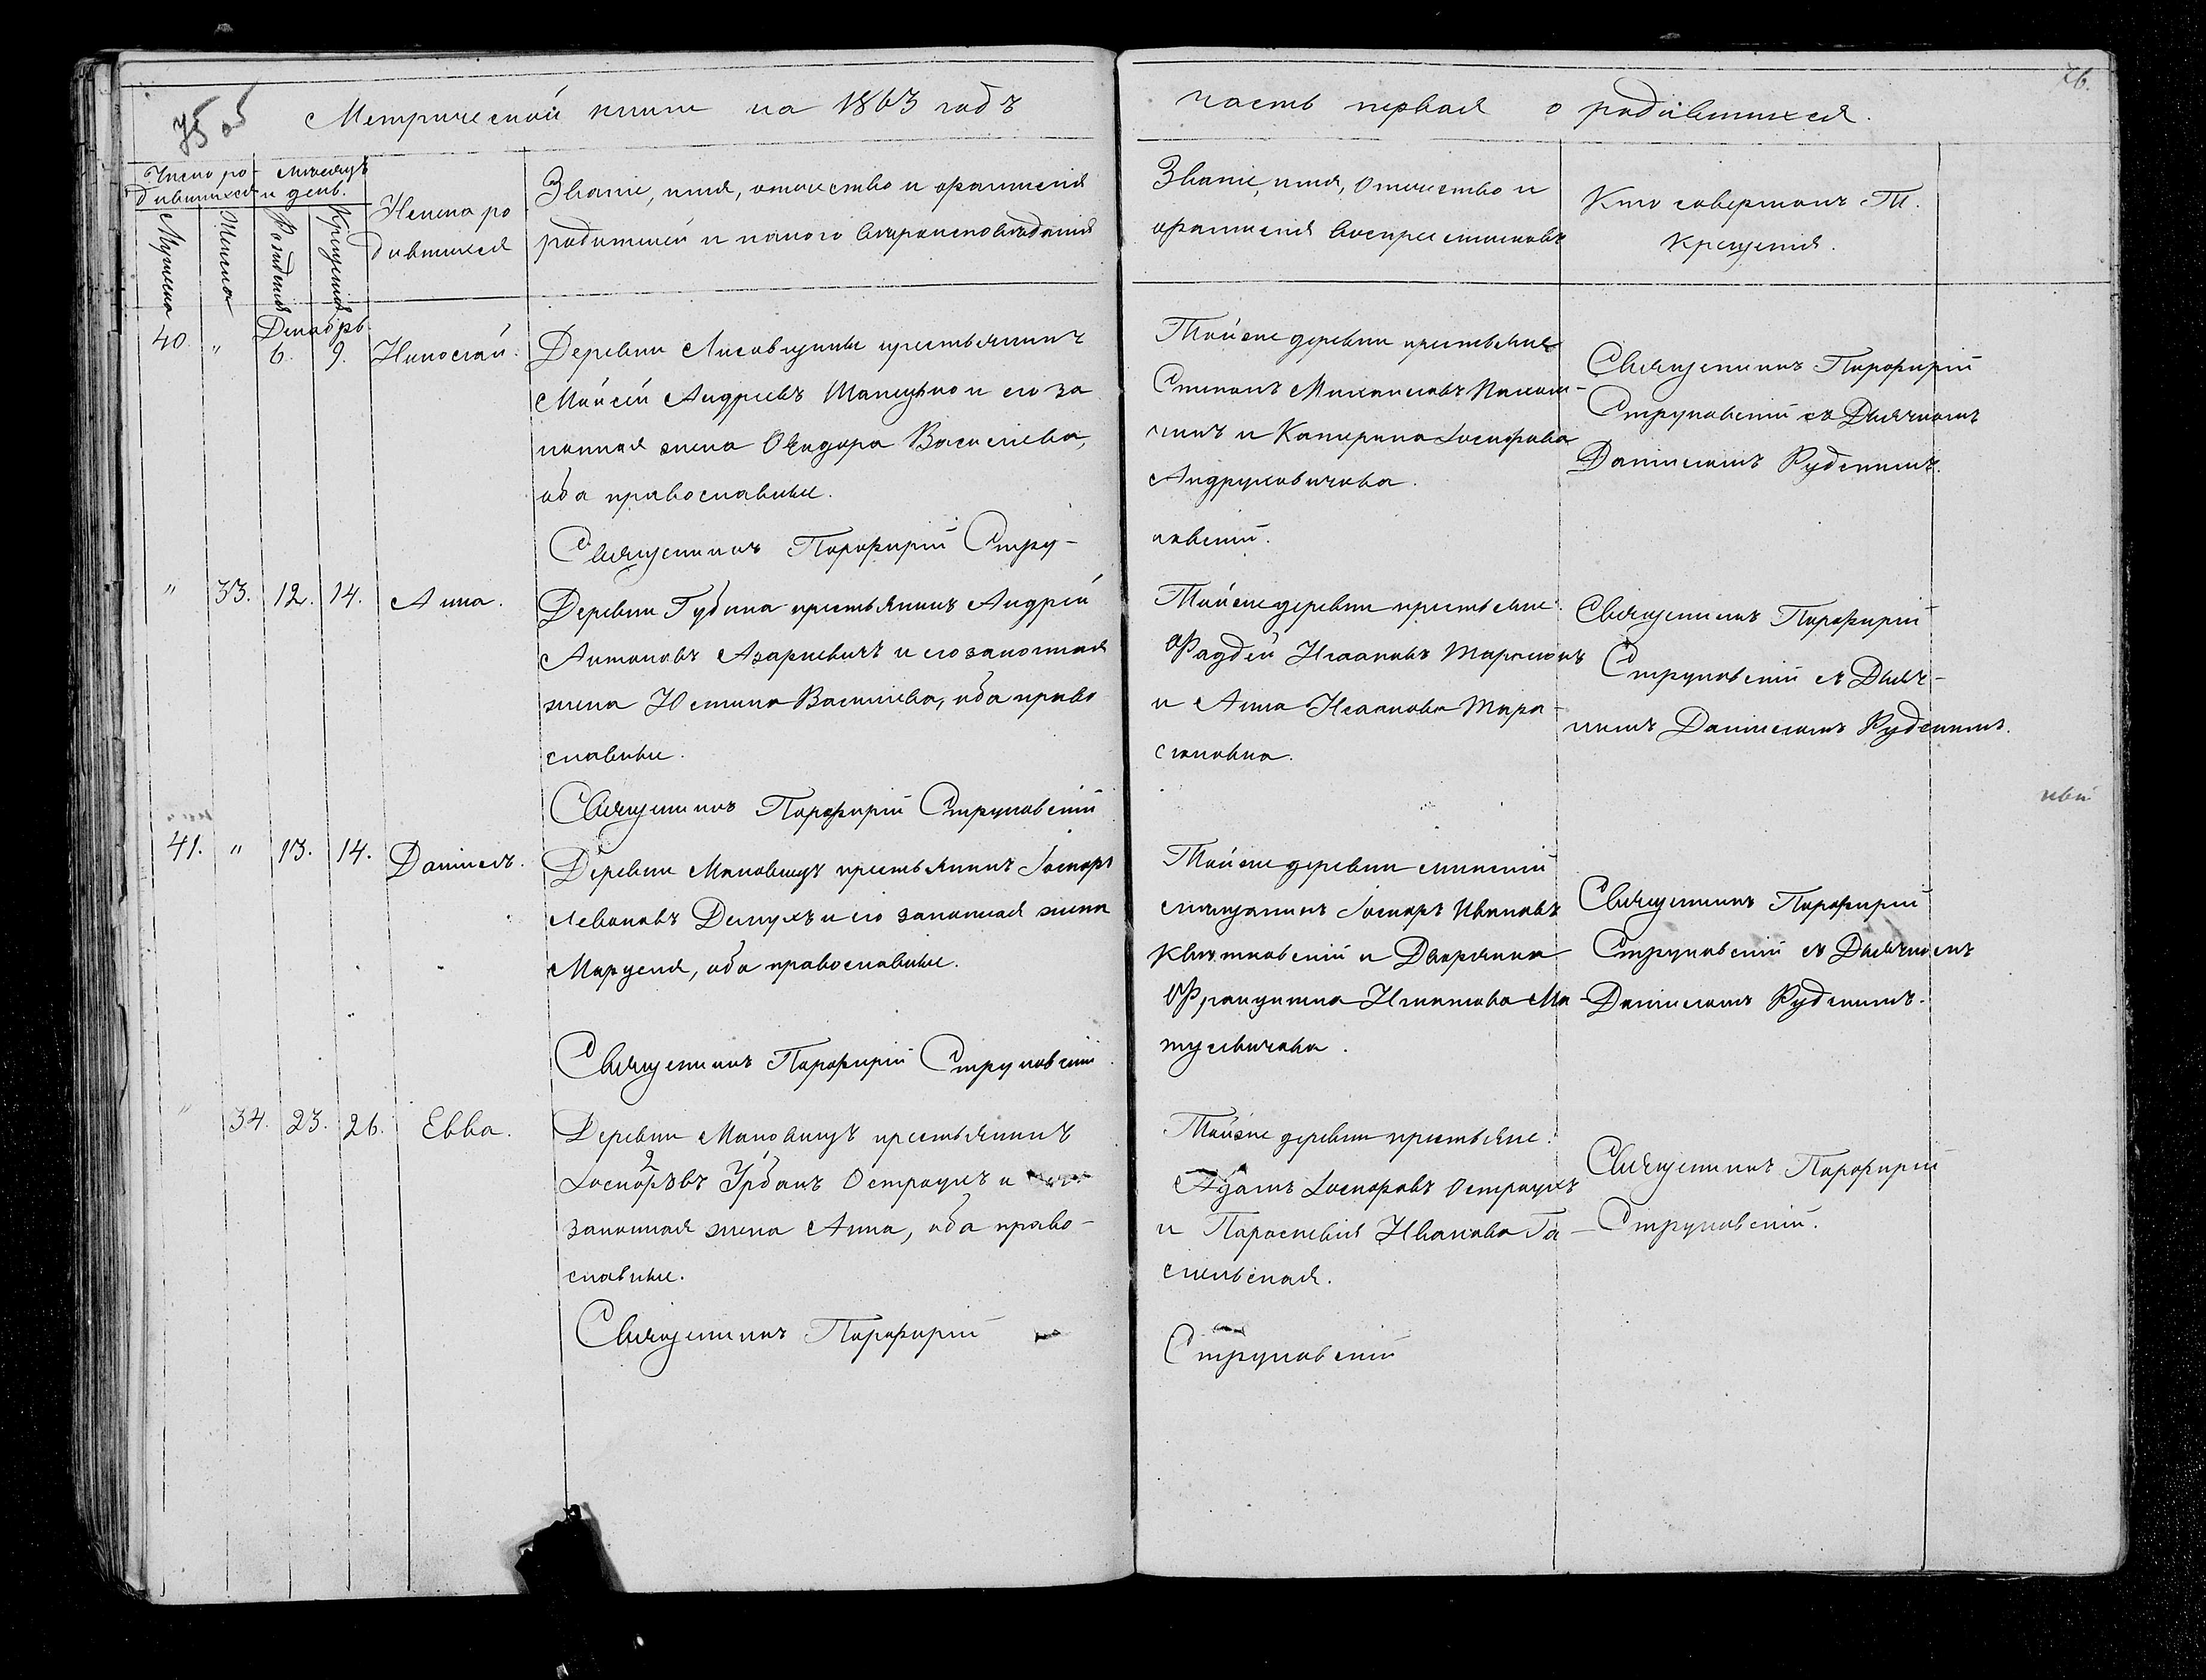 75 об
Метрической книги на 1863 годъ
часть первая о родившихся.
Число ро-
дившихся
Мужеска
Женска
Мѣсяцъ
и день.
Рожденія
Крещенія
Имена ро
дившихся
Званіе, имя, отчество и фамилія
родителей и какого вѣроисповѣданія
Званіе, имя, отчество и
фамилія воспріемниковъ
Кто совершалъ Т.
крещенія.
Декабрь
40. " 6. 9. Николай.
Деревни Лисовщины крестьянинъ
Мойсей Андреевъ и его за
конная жена Ѳеодора Василева,
оба православные.
Священникъ Порфирій Стру-
Тойже деревни крестьяне
Степанъ Михайловъ
и Катерина Іосифова
Андруковичова.
ковскій.
Священникъ Порфирій
Струковскій съ Дьячкомъ
Даниломъ Рудскимъ.
" 33. 12. 14. Анна.
Деревни Губина крестьянинъ Андрей
Антоновъ Азаркевичъ и его законная
жена Юстина Василева, оба право
славные.
Священникъ Порфирій Струковскій
Тойже деревни крестьяне:
Фаддей Исааковъ Тарасюкъ
и Анна Исаакова Тара-
сюковна.
Священникъ Порфирій
Струковскій съ Дьяч-
комъ Даниломъ Рудскимъ.
41. " 13. 14. Даніилъ.
Деревни Маковищъ крестьянинъ Іосифъ
Леоновъ и его законная жена
Маруся, оба православные.
Священникъ Порфирій Струковскій
Тойже деревни минскій
мѣщанинъ Іосифъ Ивановъ
Квятковскій и Дворянка
Францишка Игнатова Ма-
тусевичова.
Священникъ Порфирій
Струковскій съ Дьячкомъ
Даниломъ Рудскимъ.
" 34. 23. 26. Евва.
Деревни Маковищъ крестьянинъ
Іосифовъ Урбанъ Остраухъ и
законная жена Анна, оба право-
славные.
Священникъ Порфирій
Тойже деревни крестьяне:
Адамъ Іосифовъ Остраухъ
и Параскевія Иванова

Струковскій
Священникъ Порфирій
Струковскій.